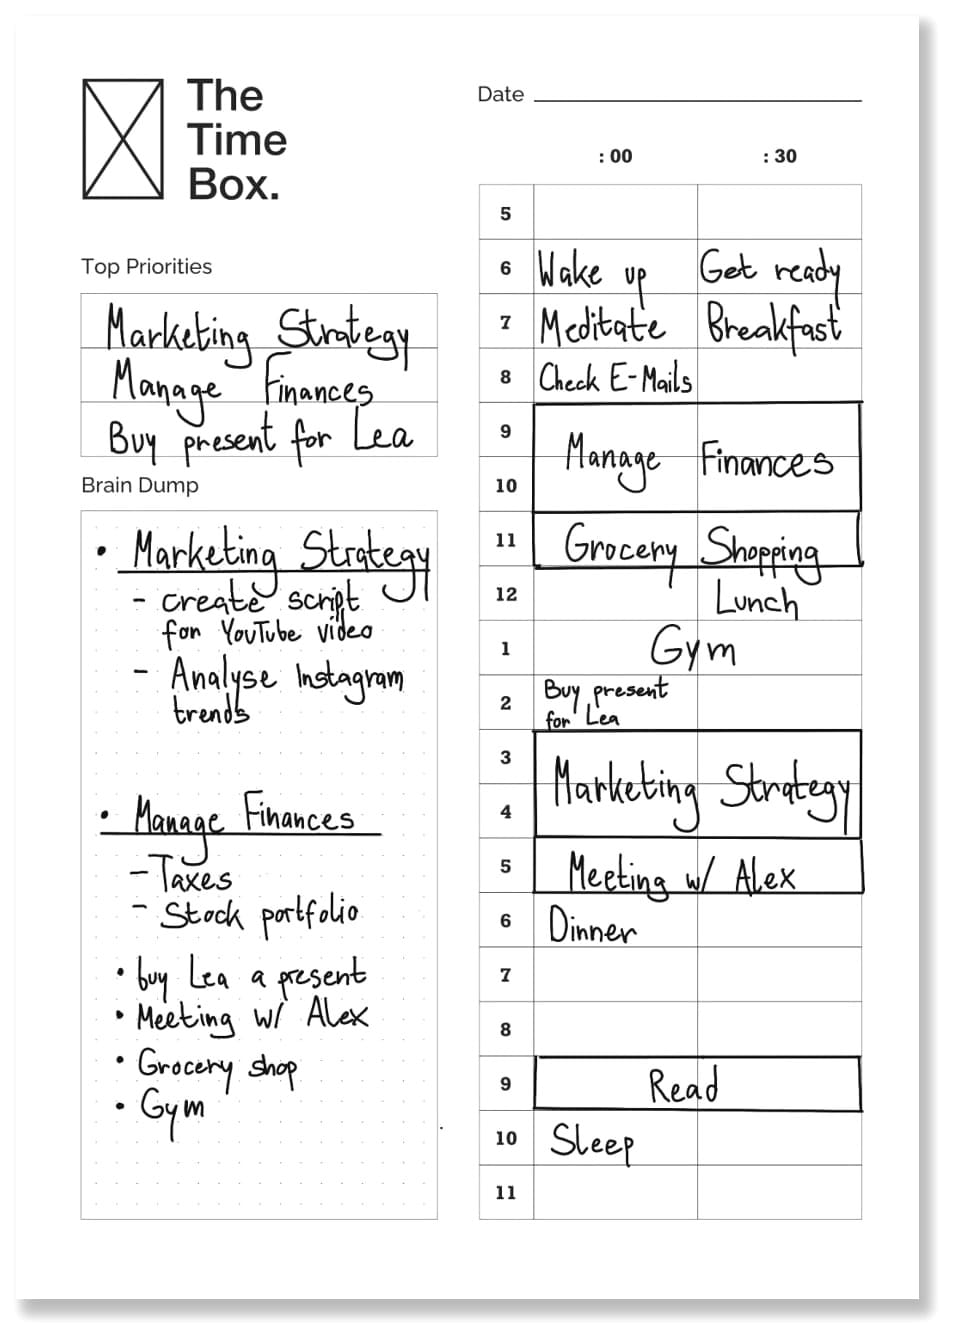 The
Time
Box.
Top Priorities
Marketing Strategy
Manage Finances
Buy present for Lea
Brain Dump
• Marketing Strategy
- create script
for YouTube video
- Analyse Instagram
trends
• Manage Finances
- Taxes
- Stock portfolio
• buy Lea a present
• Meeting w/ Alex
• Grocery shop
• Gym
Date
:00 :30
5
6 Wake up Get ready
7 Meditate Breakfast
8 Check E-Mails
9
Manage Finances
10
11 Grocery Shopping
12 Lunch
1 Gym
2 Buy present
for Lea
3
Marketing Strategy
4
5 Meeting w/ Alex
6 Dinner
7
8
9 Read
10 Sleep
11